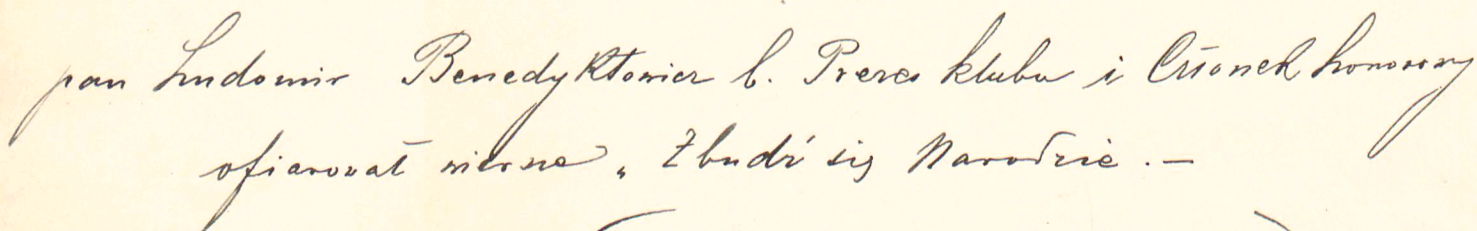 pan Ludomir Benedyktowicz b. Prezes klubu i Członek honorowy
ofiarował wiersze „Zbudź się Narodzie. —